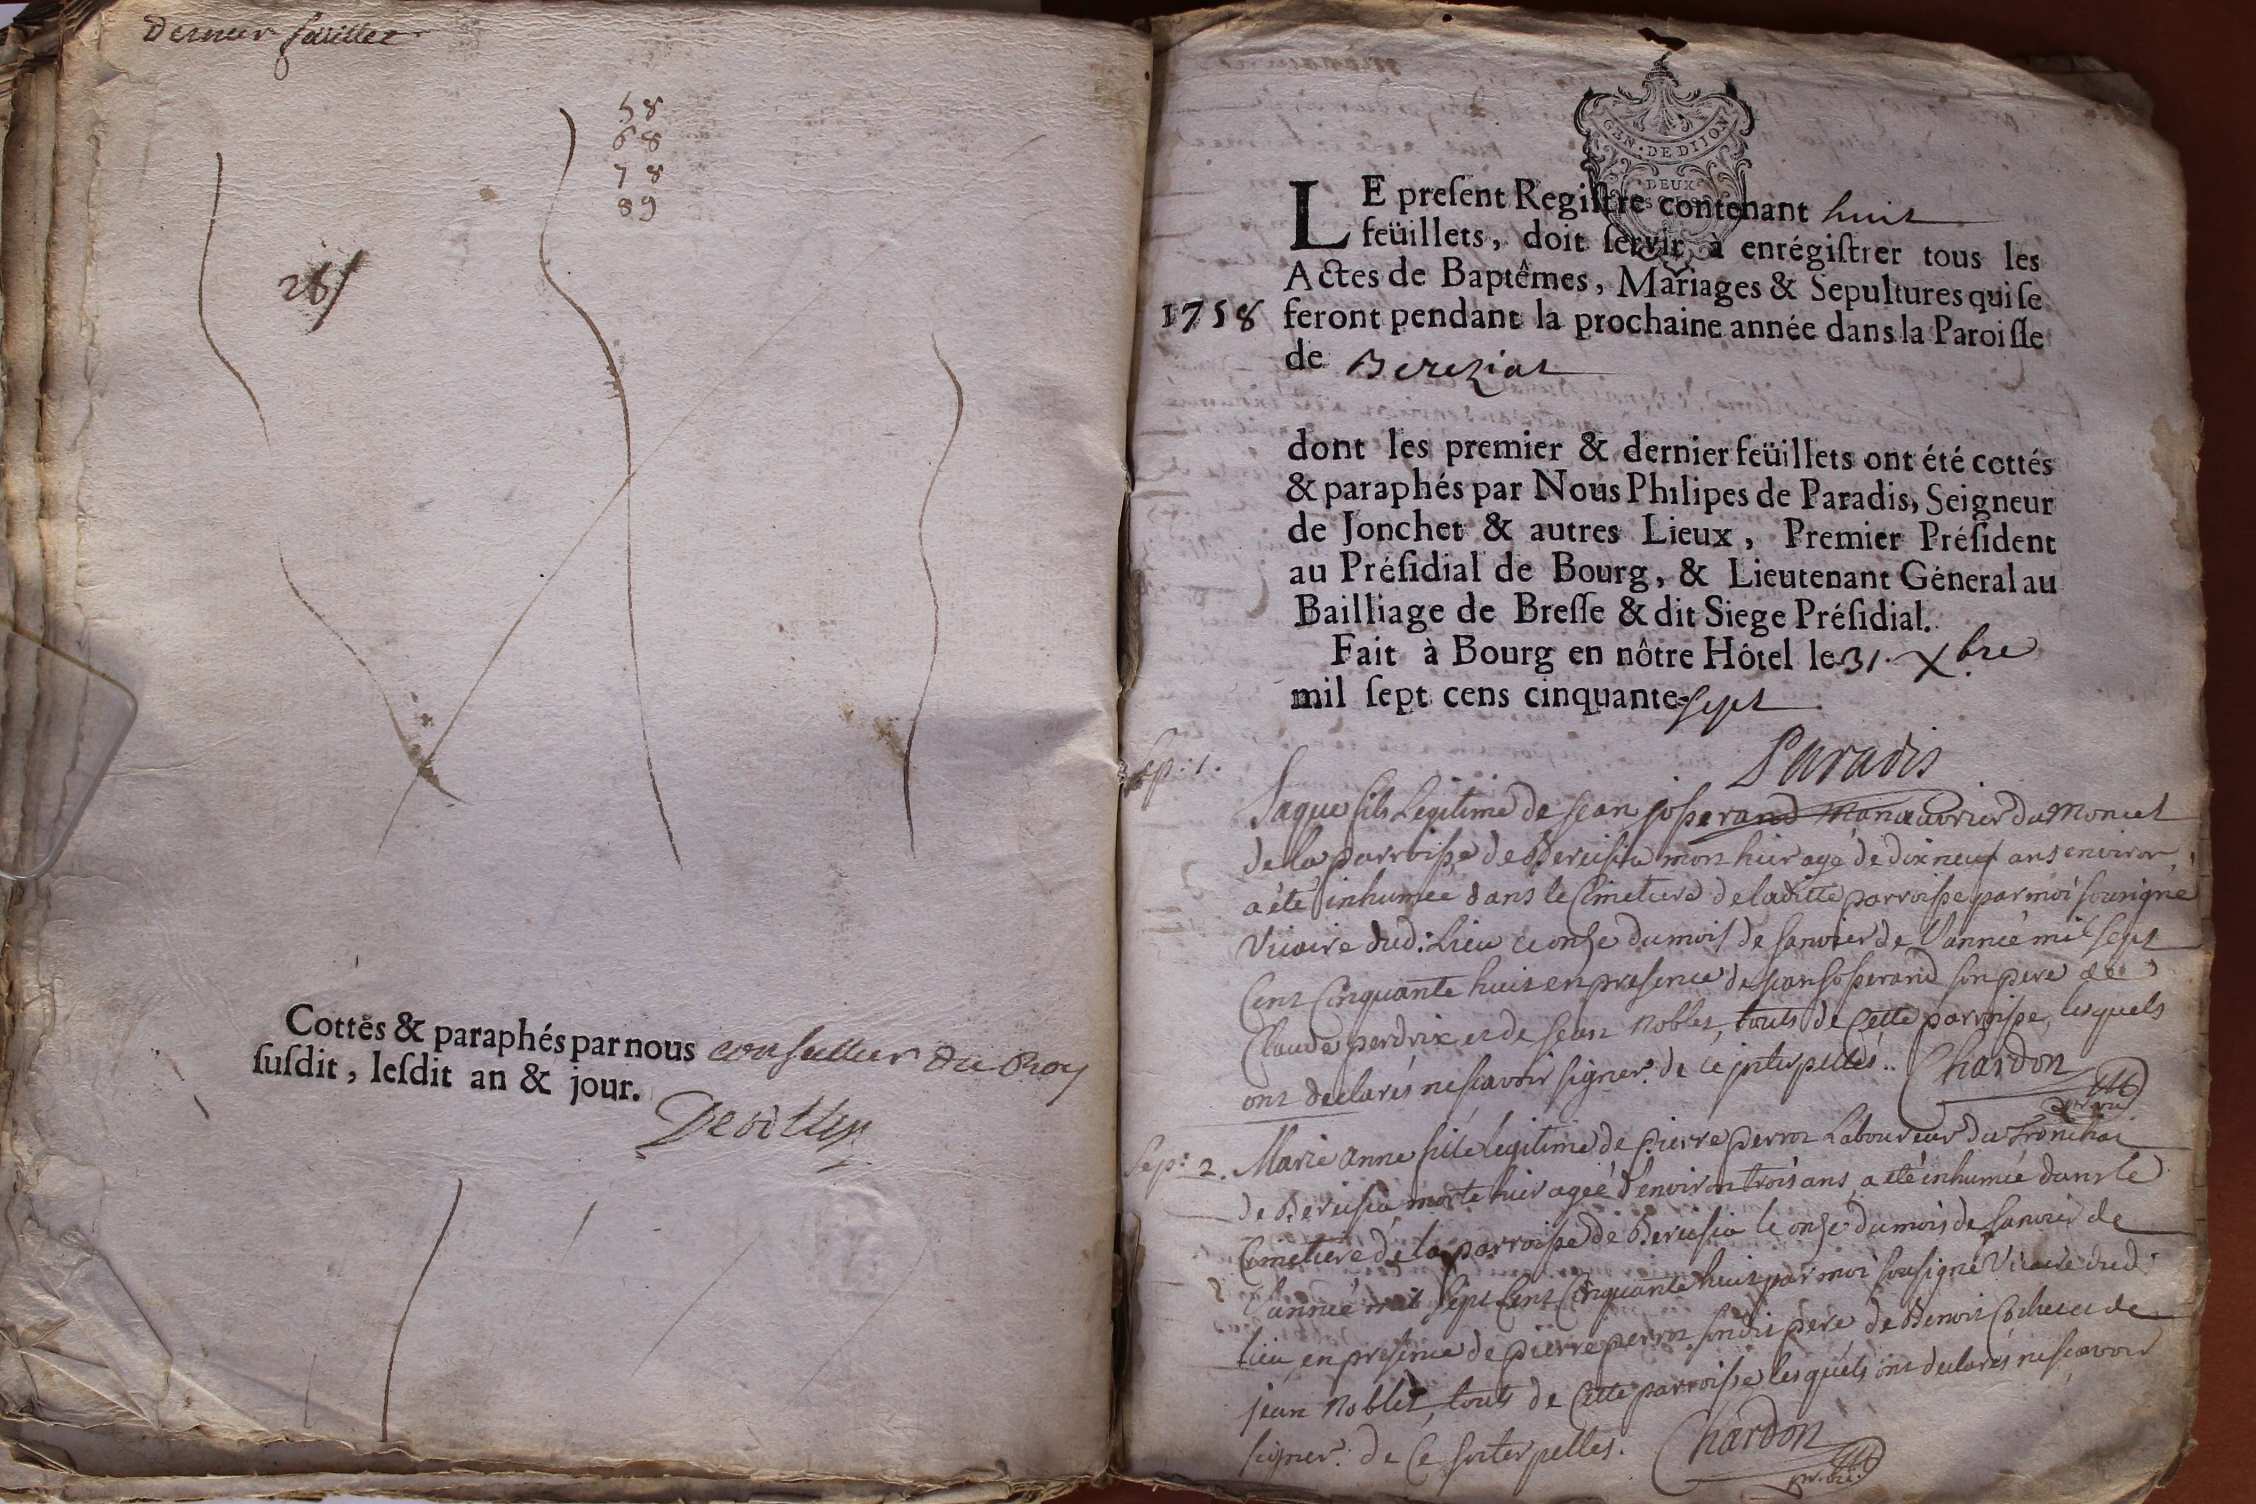 Dernier feüillet
58
68
78
89
Cottés & paraphés par nous conseiller du Roy
susdit, lesdit an & jour.
GEN. DE DIJON
DEUX
LE present Registre contenant huit
feüillets, doit servir à enrégistrer tous les
Actes de Baptêmes, Mariages & Sepultures qui se
1758 feront pendant la prochaine année dans la Paroisse
de Bereziat
dont les premier & dernier feüillets ont été cottés
& paraphés par Nous Philipes de Paradis, Seigneur
de Jonchet & autres Lieux, Premier Président
au Présidial de Bourg, & Lieutenant Géneral au
Bailliage de Bresse & dit Siege Présidial.
Fait à Bourg en nôtre Hôtel le 31. Xbre
mil sept cens cinquante-sept
Paradis
Sep: 1.
Jaque fils Legitime de jean josserand Manœuvrier du Moncet
de la parroisse de Bereisia mort hier agé de dix neuf ans environ,
a été inhumée dans le Cimetiere de laditte parroisse par moi sousigné
Vicaire dud: Lieu ce onze du mois de janvier de l'année mil sept
Cent Cinquante huit en presence de jean josserand son pere de
Claude perdrix et de jean Noblet, touts de Cette parroisse, lesquels
ont declarés ne scavoir signer. de ce interpellés.. Chardon
Sep: 2. Marie anne fille legitime de pierre perrot Laboureur du Tronchai
de Bereisia morte hier ageé d'environ trois ans, a été inhumée dans le
Cimetiere de la parroisse de Bereisia le onze du mois de janvier de
l'année mil sept Cent Cinquante huit par moi sousigné Vicaire dud:
lieu en presence de pierre perrot sondit pere de Benoit Cochet et de
jean Noblet, touts de Cette parroisse lesquels ont declarés ne scavoir
signer. de Ce interpellés. Chardon